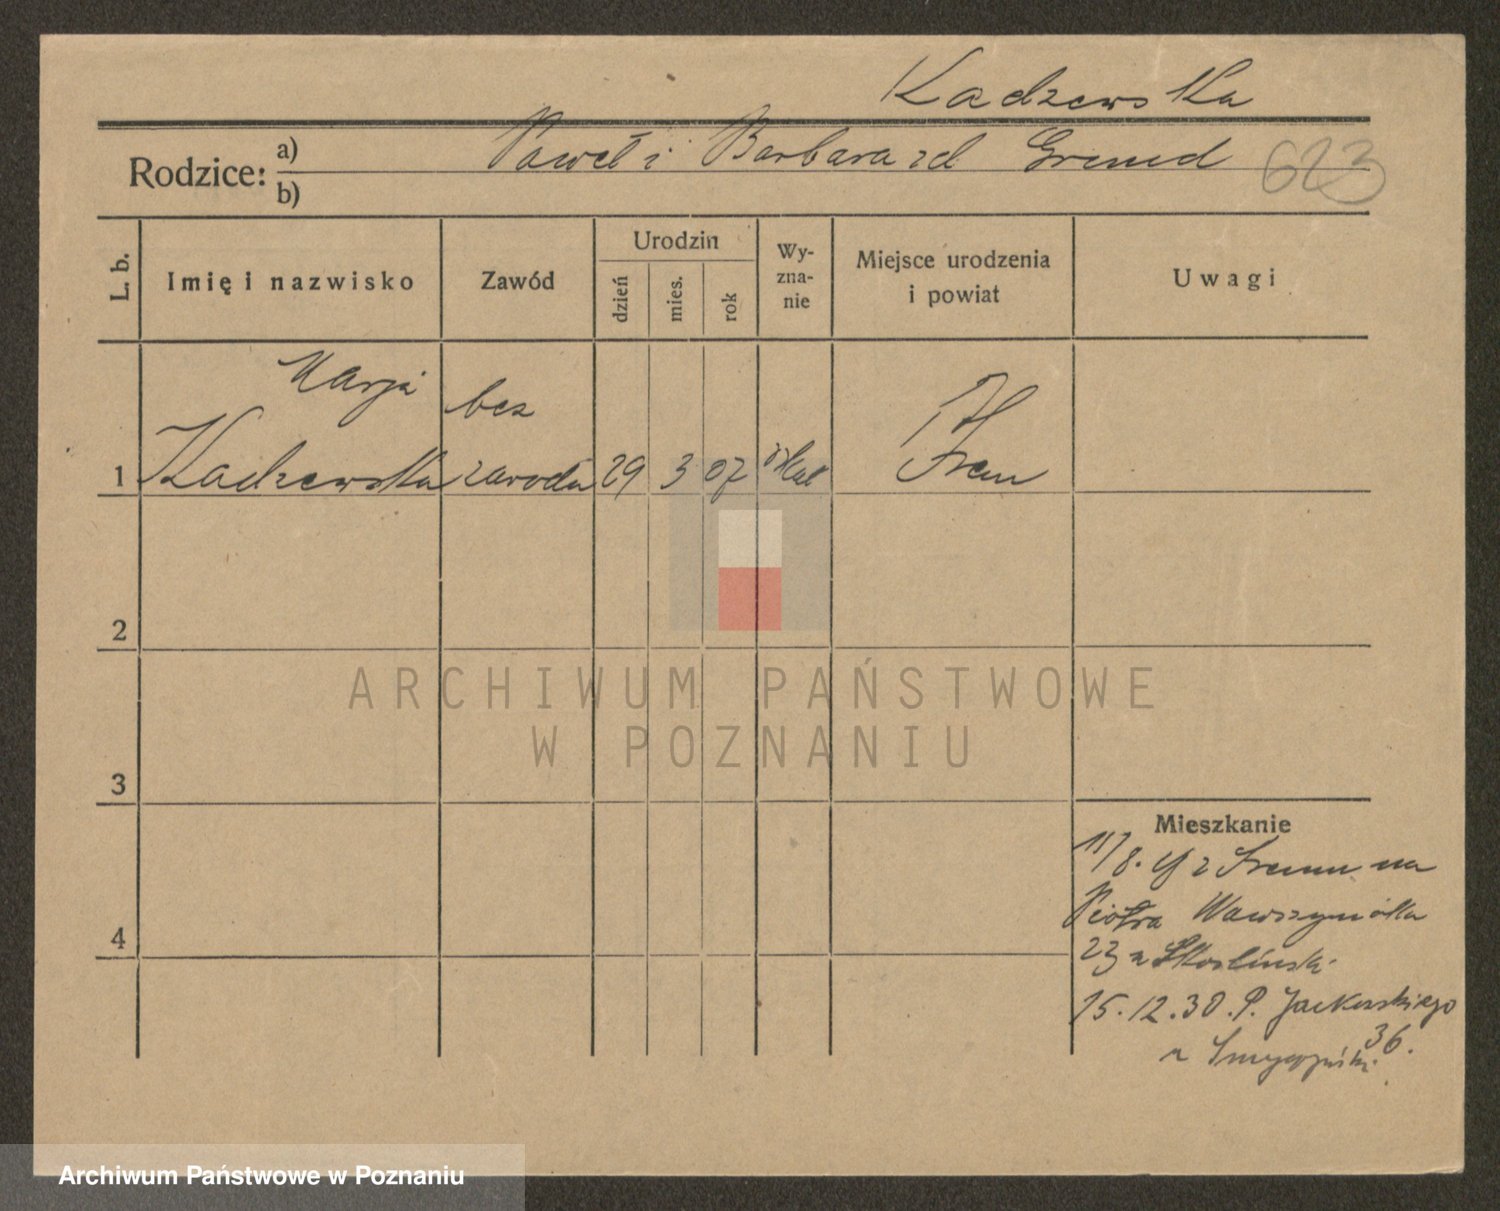 Kadzewska
Rodzice: a) Paweł i Barbara zd Grund
b)
623
L. b.
Imię i nazwisko
Zawód
Urodzin
dzień
mies.
rok
Wy-
zna-
nie
Miejsce urodzenia
i powiat
Uwagi
Marja
Kadzewska
bez
zawodu
1
29
3
07
Kat
Śrem
2
3
4
Mieszkanie
11/8. z Śremu na
Piotra Wawrzyniaka
23 u
15.12.30. P. Jackowskiego
36.
u
ARCHIWUM PAŃSTWOWE
W POZNANIU
Archiwum Państwowe w Poznaniu